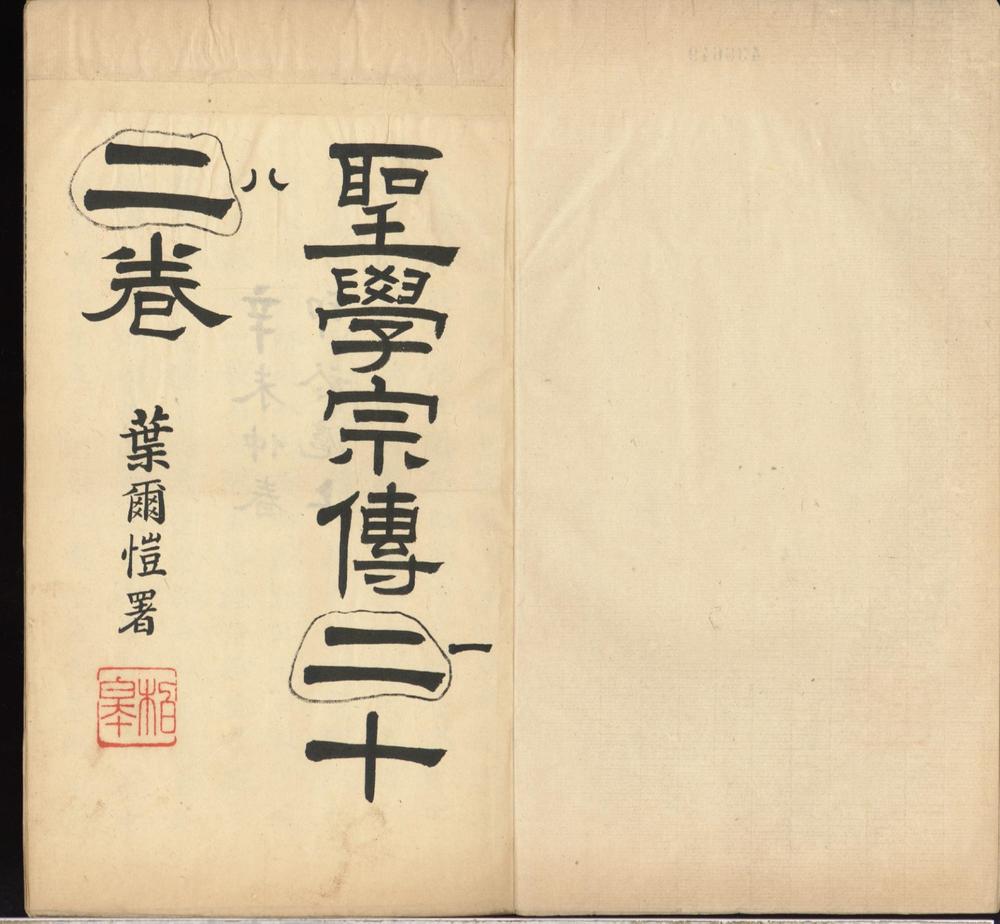 聖學宗傳二十
一
二卷
八
葉爾愷署
柏皋